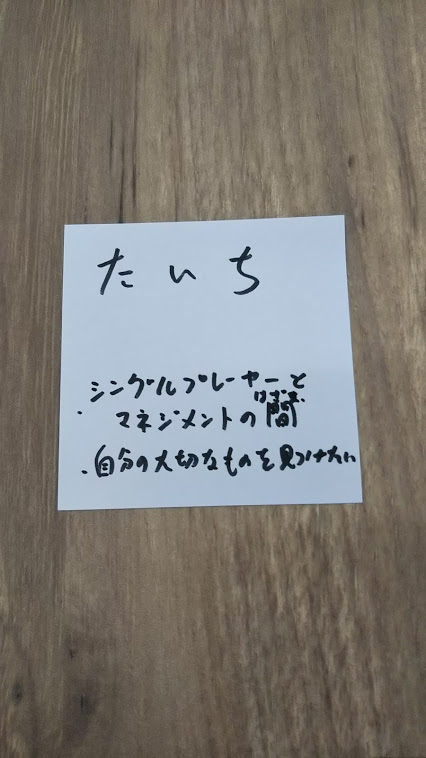 たいち
・シングルプレーヤーと
マネジメントの間
はざま
・自分の大切なものを見つけたい